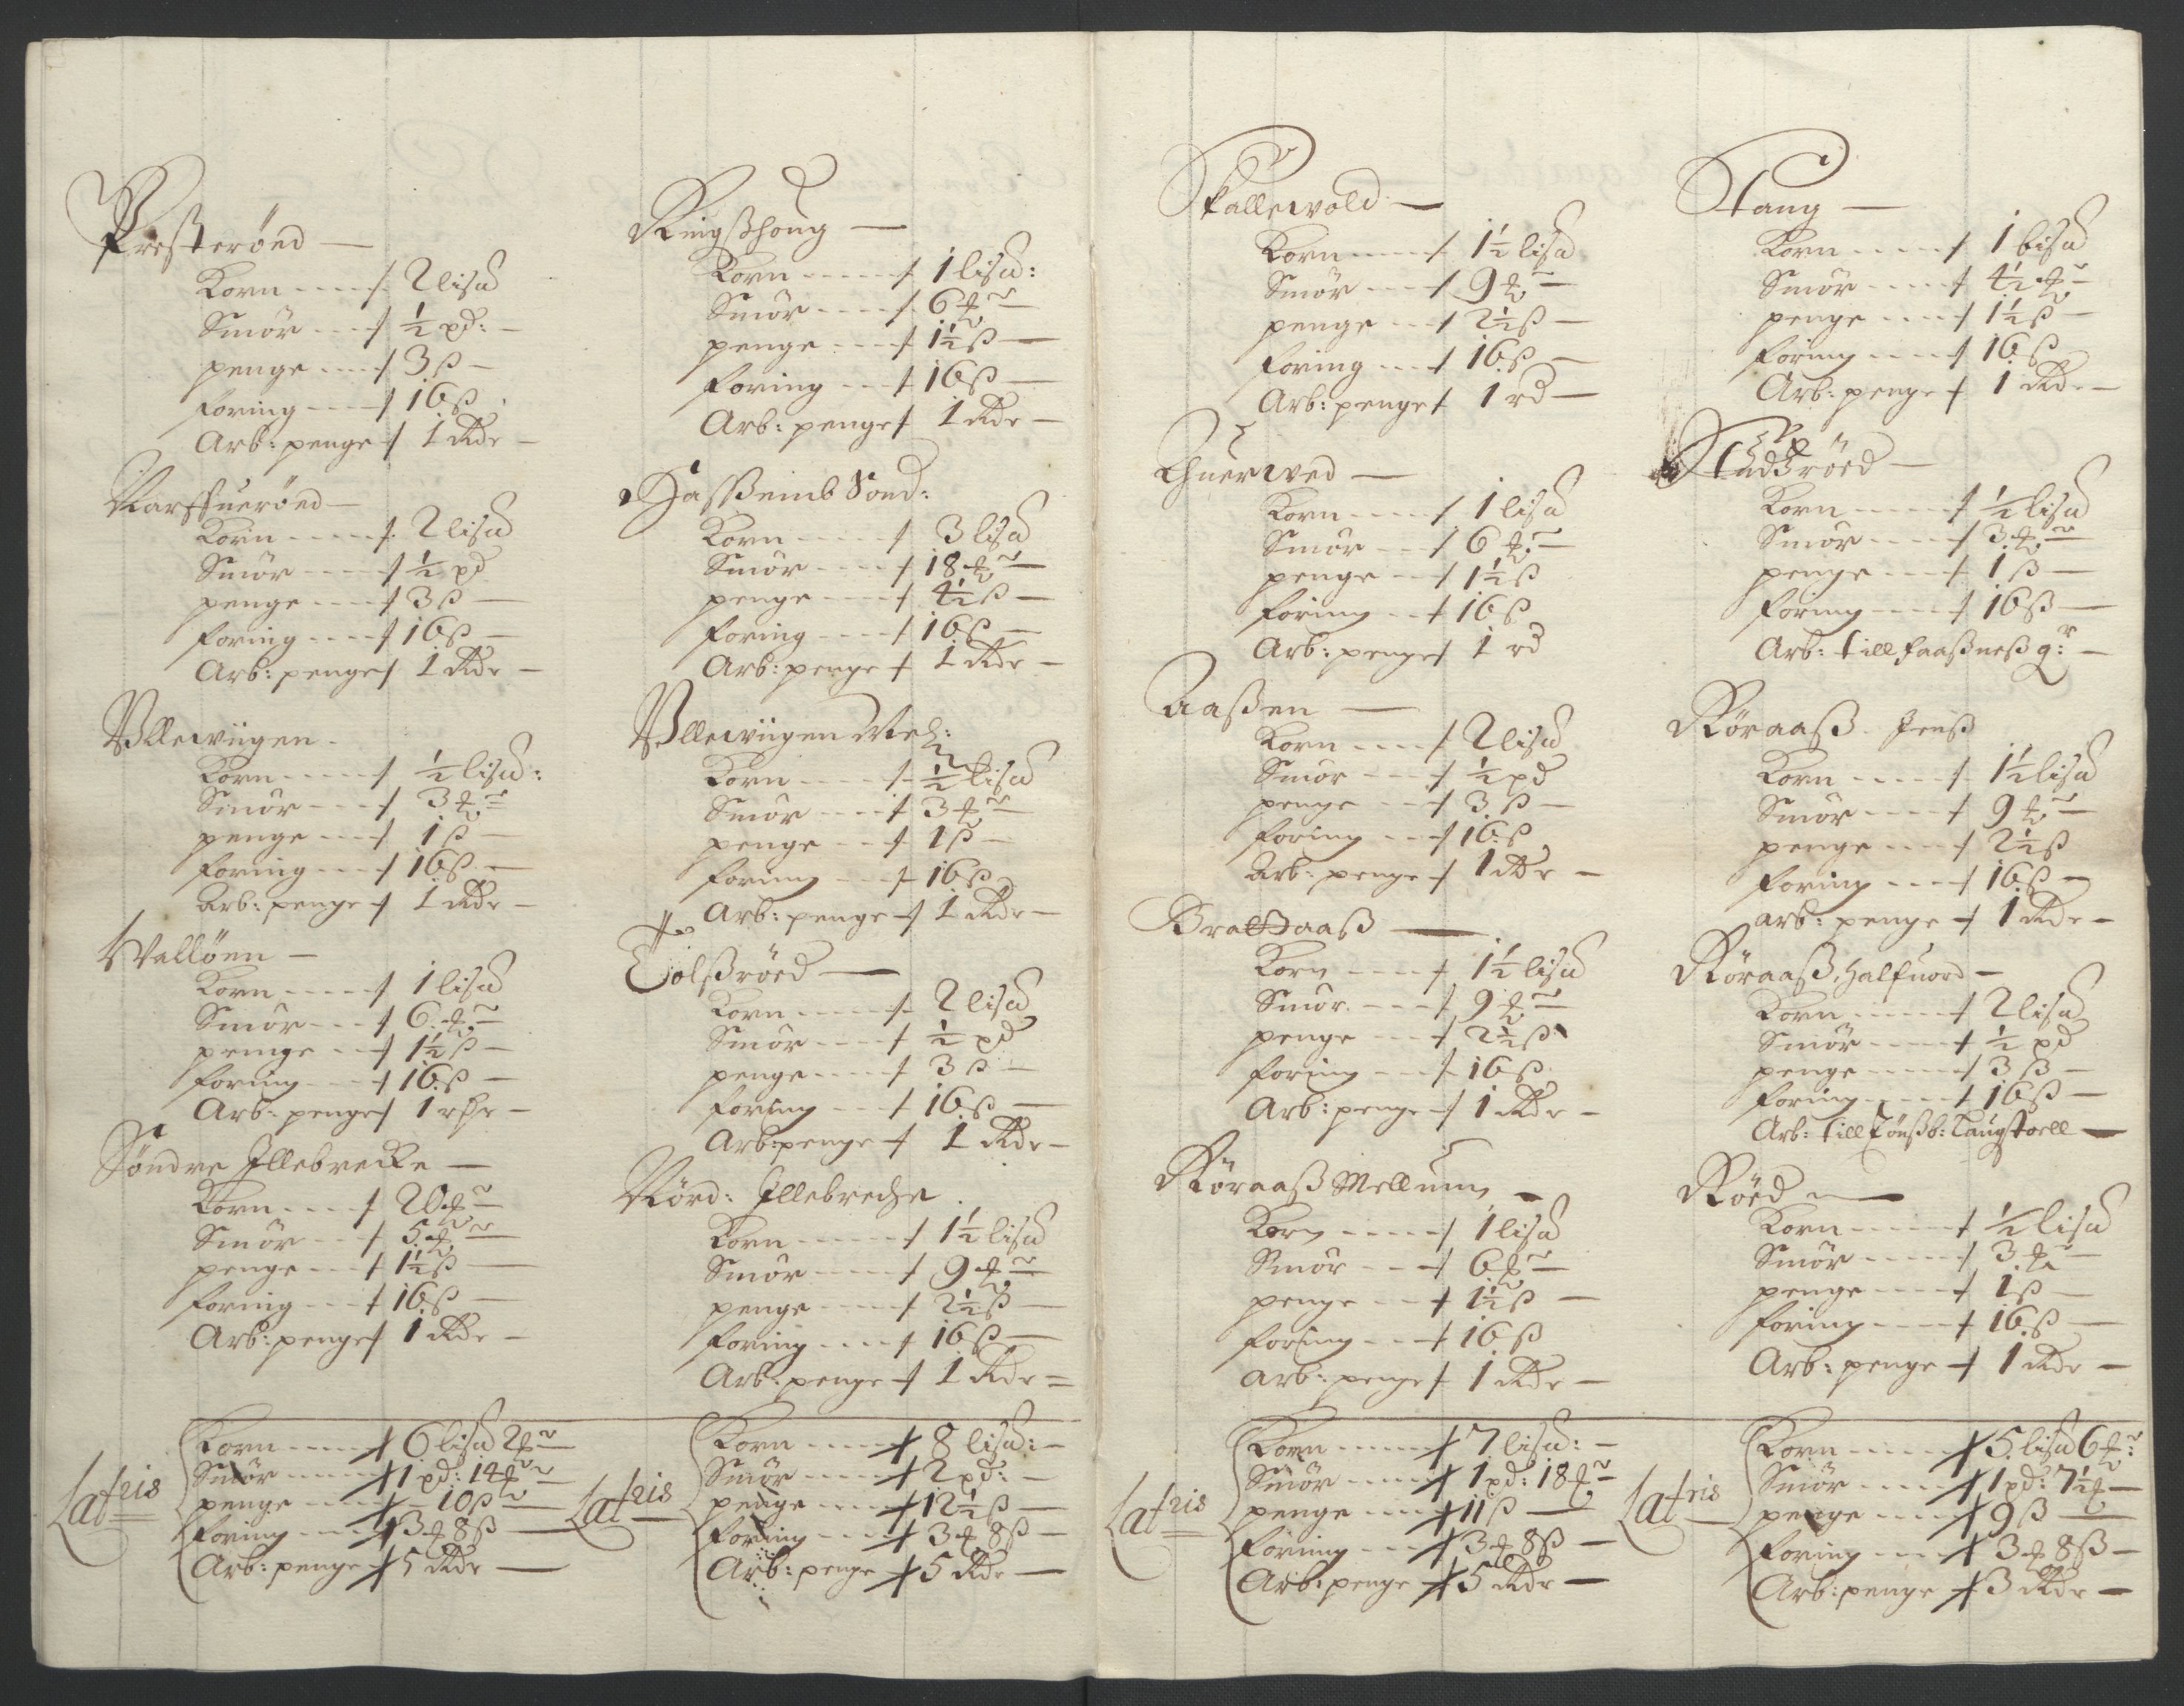 Presteröed —
Korn ---- / 2 lisd
Smör ---- / ½ pd: —
penge ---- / 3 ß —
foring ---- / 16 ß
Arb: penge / 1 Rdr —
Korn ---- / 2 lisd
Smör ---- / ½ pd
penge ---- / 3 ß —
foring ---- / 16 ß —
Arb: penge / 1 Rdr —
Ullewiigen -
Korn ---- / ½ lisd:
Smör ---- / 3 ℔r =
penge ---- / 1 ß —
foring ---- / 16 ß —
Arb: penge / 1 Rdr —
Wallöen —
Korn ---- / 1 lisd
Smör ---- / 6 ℔r —
penge --- / 1½ ß —
foring ---- / 16 ß —
Arb: penge / 1 rdr —
Söndre Illebrecke —
Korn ---- / 20 ℔r —
Smör --- / 5 ℔r —
penge --- / 1½ ß —
foring --- / 16 ß —
Arb: penge / 1 Rdr —
Latris
Korn ---- / 6 lisd 2 ℔r
Smör ---- / 1 pd: 14 ℔r
penge ---- / - 10 ß —
foring --- / 3 ℔ 8 ß —
Arb: penge / 5 Rdr —
Ringßhoug —
Korn ---- / 1 lisd:
Smör ---- / 6 ℔r —
penge ---- / 1½ ß —
foring --- / 16 ß —
Arb: penge / 1 Rdr —
Haßeimb Sond:
Korn ---- / 3 lisd
Smör ---- / 18 ℔r —
penge ---- / 4½ ß —
foring ---- / 16 ß —
Arb: penge / 1 Rdr —
Ullewiigen Mel:
Korn ---- / ½ lisd
Smör ---- / 3 ℔r —
penge --- / 1 ß —
foring --- / 16 ß
Arb: penge / 1 Rdr —
Eolßröed —
Korn ---- / 2 lisd
Smör ---- / ½ pd
penge ---- / 3 ß —
foring --- / 16 ß —
Arb: penge / 1 Rdr —
Nörd: Illebreche
Korn ---- / 1½ lisd
Smör ---- / 9 ℔r —
penge ---- / 2½ ß —
foring ---- / 16 ß —
Arb: penge / 1 Rdr =
Latris
Korn ---- / 8 lisd: -
Smör ---- / 2 pd: —
penge ---- / 12½ ß —
foring --- / 3 ℔ 8 ß —
Arb: penge / 5 Rdr —
Skallewold —
Korn ---- / 1½ lisd
Smör --- / 9 ℔r —
penge --- / 2½ ß —
foring --- / 16 ß —
Arb: penge / 1 rd —
Querwed —
Korn ---- / 1 lisd
Smör --- / 6 ℔r —
penge --- / 1½ ß
foring --- / 16 ß
Arb: penge / 1 rd
Aaßen —
Korn ---- / 2 lisd
Smör --- / ½ pd
penge --- / 3 ß —
foring --- / 16 ß
Arb: penge / 1 Rdr —
Korn ---- / 1½ lisd
Smör --- / 9 ℔r —
penge --- / 2½ ß
foring --- / 16 ß
Arb: penge / 1 Rdr —
Röraaß Mellum —
Korn ---- / 1 lisd
Smör --- / 6 ℔r —
penge --- / 1½ ß —
foring --- / 16 ß
Arb: penge / 1 Rdr —
Latris
Korn ---- / 7 lisd: —
Smör ---- / 1 pd: 18 ℔r
penge ---- / 11 ß —
foring --- / 3 ℔ 8 ß —
Arb: penge / 5 Rdr —
Stang —
Korn ---- / 1 lisd
Smör ---- / 4½ ℔r —
penge ---- / 1½ ß —
foring ---- / 16 ß
Arb: penge / 1 Rdr —
Korn ---- / ½ lisd
Smör ---- / 3 ℔r —
penge ---- / 1 ß —
foring ---- / 16 ß —
Arb: till faaßneß gr: —
Röraaß Jenß
Korn ---- / 1½ lisd
Smör ---- / 9 ℔r —
penge ---- / 2½ ß
foring ---- / 16 ß —
arb: penge / 1 Rdr —
Röraaß, Halfuord —
Korn ---- / 2 lisd
Smör ---- / ½ pd
penge ---- / 3 ß —
foring ---- / 16 ß —
Arb: till Tönßb: Laugstoell —
Röed —
Korn ---- / ½ lisd
Smör ---- / 3 ℔r —
penge ---- / 1 ß —
foring ---- / 16 ß —
Arb: penge / 1 Rdr —
Latris
Korn ---- / 5 lisd 6 ℔r:
Smör ---- / 1 pd: 7½ ℔ —
penge ---- / 9 ß —
foring ---- / 3 ℔ 8 ß —
Arb: penge / 3 Rdr —